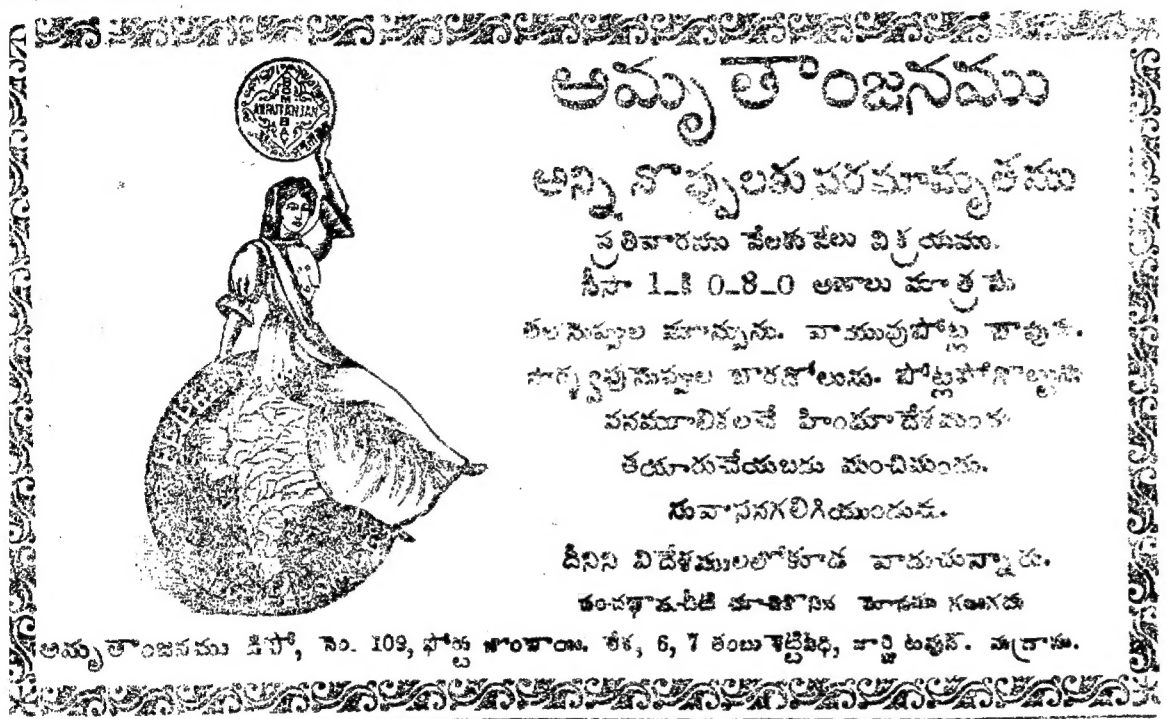 BOMBAY
AMRUTANJAN
అమృతాంజనము
అన్ని నొప్పులకు పరమామృతము
ప్రతివారము వేలకువేలు విక్రయము.
సీసా 1_కి 0_8_0 అణాలు మాత్రమే
తలనొప్పుల మాన్పును. వాయువుపోట్ల బాపును.
పార్శ్వపునొప్పుల బారదోలును. పోట్లపోగొట్టును
వనమూలికలచే హిందూదేశమందు
తయారుచేయబడు మంచిమందు.
సువాసనగలిగియుండును.
దీనిని విదేశములలోకూడ వాడుచున్నారు.
అమృతాంజనము డిపో, నెం. 109, ఫోర్టు బొంబాయి. లేక, 6, 7 తంబుశెట్టివీధి, జార్జి టవున్. మద్రాసు.